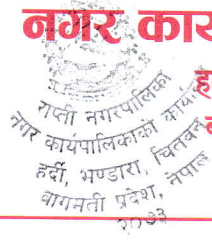 नगर कार्य
राप्ती नगरपालिका
नगर कार्यपालिकाको कार्यालय
हर्दी, भण्डारा, चितवन
बागमती प्रदेश, नेपाल
२०७३